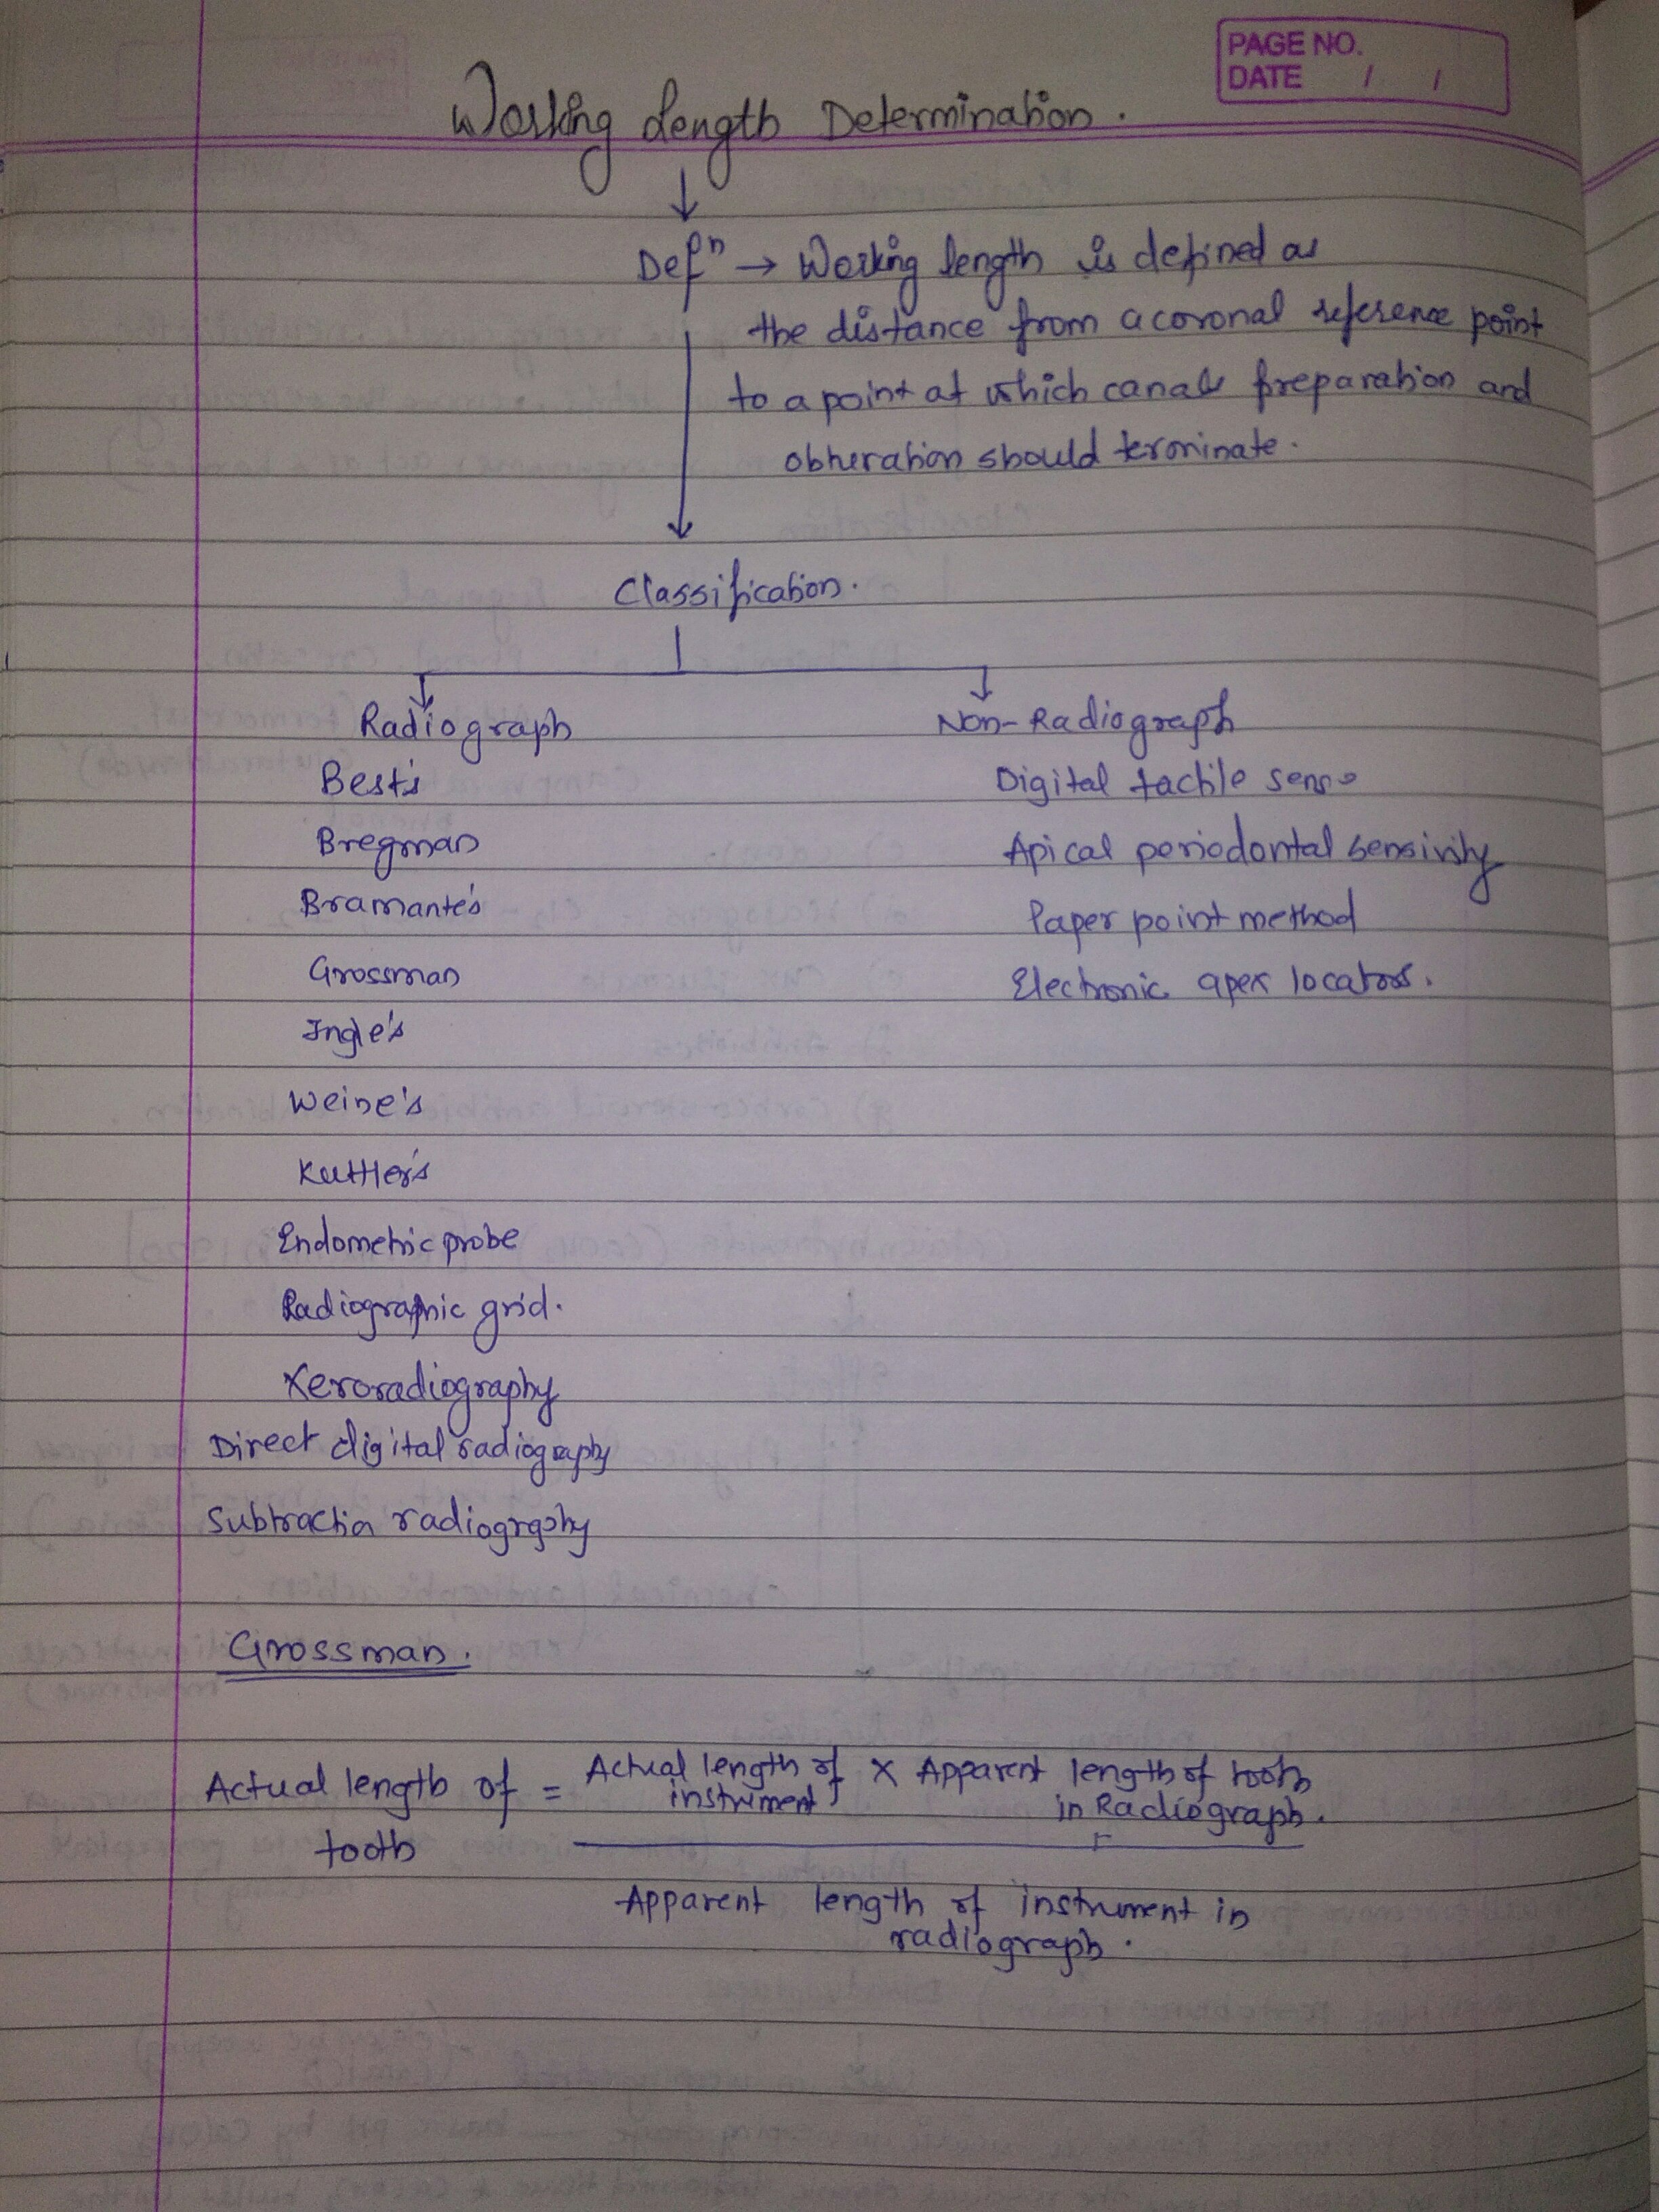 PAGE NO.
DATE / /
Working Length Determination.
Defⁿ → Working length is defined as
the distance from a coronal reference point
to a point at which canal preparation and
obturation should terminate.
Classification.
Radiograph
Non-Radiograph
Best's
Digital tactile sense
Bregman
Apical periodontal sensivity
Bramante's
Paper point method
Grossman
Electronic apex locators.
Ingle's
Weine's
Kuttler's
Endometric probe
Radiographic grid.
Xeroradiography
Direct digital radiography
Subtraction radiography
Grossman.
Actual length of = Actual length of × Apparent length of tooth
instrument in Radiograph.
tooth
Apparent length of instrument in
radiograph.